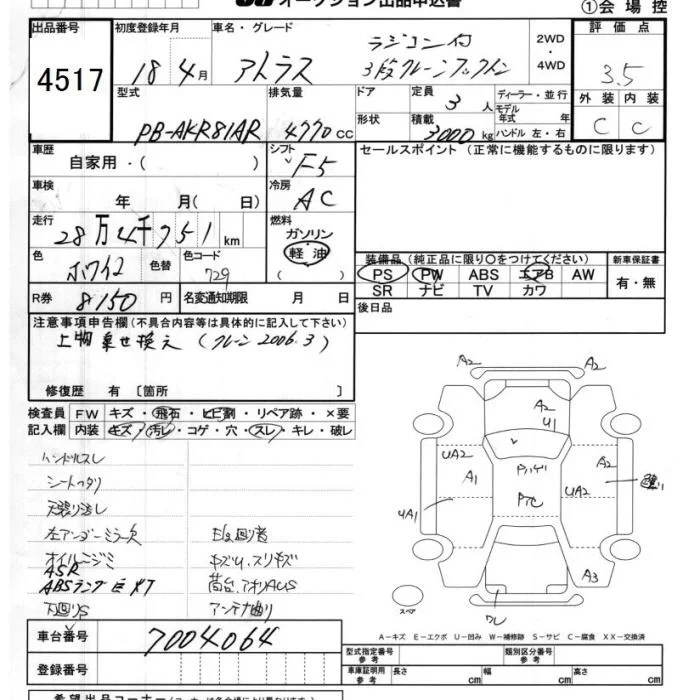 オークション出品申込書
①会場控
出品番号 4517
初度登録年月 18年4月
車名・グレード アトラス ラジコン付 3段クレーンフックイン
2WD・4WD
評価点 3.5
外装 C 内装 C
型式 PB-AKR81AR
排気量 4770cc
ドア
形状
定員 3人
積載 3000kg
ディーラー・並行
モデル年式 年
ハンドル 左・右
車歴 自家用・( )
シフト F5
セールスポイント(正常に機能するものに限ります)
車検 年 月( 日)
冷房 AC
走行 28万4千751km
燃料 ガソリン 軽油 ( )
色 ホワイト 色替
色コード 729
装備品(純正品に限り○をつけてください)
新車保証書 有・無
PS PW ABS エアB AW
SR ナビ TV カワ
R券 8150円
名変通知期限 月 日
後日品
注意事項申告欄(不具合内容等は具体的に記入して下さい)
上物乗せ換え (クレーン2006.3)
修復歴 有 〔箇所 〕
検査員記入欄
FW キズ・飛石・ヒビ割・リペア跡・×要
内装 キズ・汚レ・コゲ・穴・スレ・キレ・破レ
ハンドルスレ
シートヘタリ
左アンダーミラー欠
オイルニジミ キズU、スリキズ
ASR
ABSランプ 荷台、アオリAUS
下廻りS アンテナ曲り
A2 A2
A2
U1
UA2 A1 A2
UA2
UA1
A3
スペア
A-キズ E-エクボ U-凹み W-補修跡 S-サビ C-腐食 XX-交換済
車台番号 7004064
登録番号
型式指定番号 参考
類別区分番号 参考
車庫証明用 参考 長さ cm 幅 cm 高さ cm
希望出品コーナー